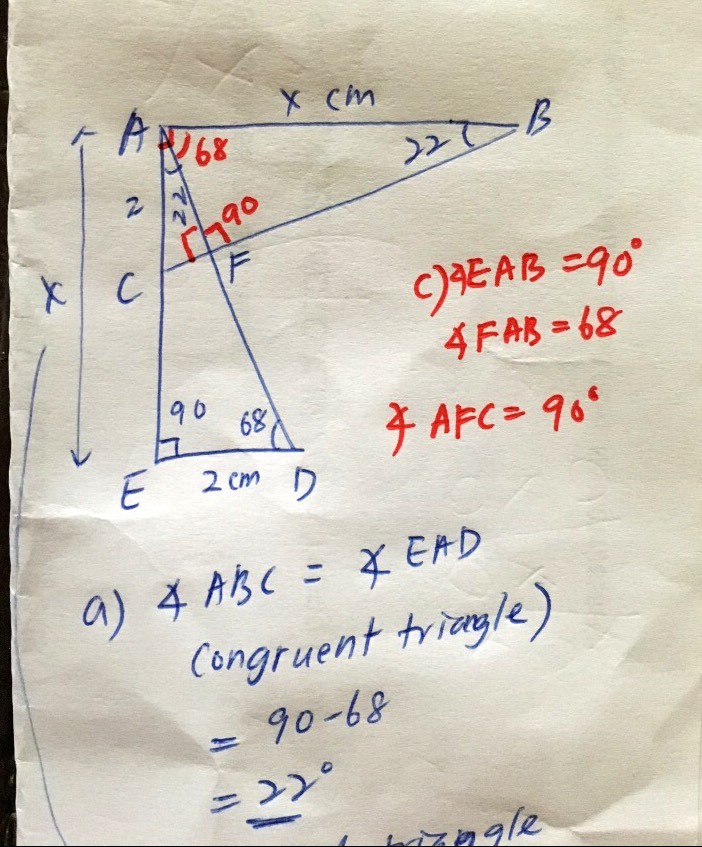 x cm
A
B
68
22
2
22
90
F
C
x
c) ∡EAB = 90°
∡FAB = 68
∡AFC = 90°
90
68
E
2 cm
D
a) ∡ABC = ∡EAD
(congruent triangle)
= 90-68
= 22°
triangle